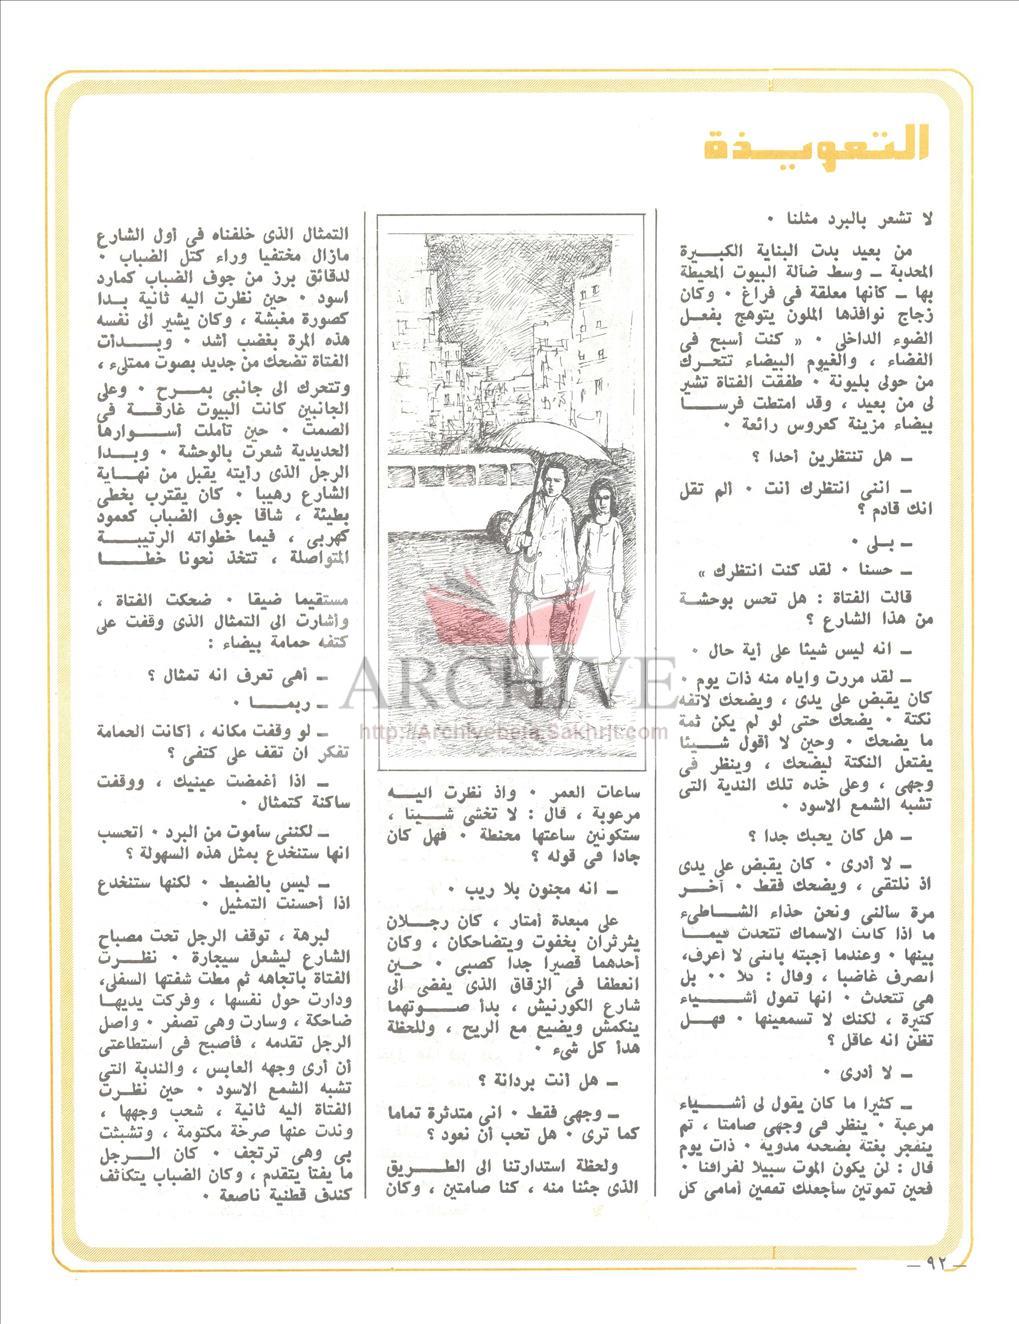 التعويذة
لا تشعر بالبرد مثلنا ٠
من بعيد بدت البناية الكبيرة
المحدبة ــ وسط ضآلة البيوت المحيطة
بها ــ كانها معلقة فى فراغ ٠ وكان
زجاج نوافذها الملون يتوهج بفعل
الضوء الداخلى ٠ « كنت أسبح فى
الفضاء ، والغيوم البيضاء تتحرك
من حولى بليونة ٠ طفقت الفتاة تشير
لى من بعيد ، وقد امتطت فرسا
بيضاء مزينة كعروس رائعة ٠
ــ هل تنتظرين أحدا ؟
ــ اننى انتظرك أنت ٠ ألم تقل
انك قادم ؟
ــ بلى ٠
ــ حسنا ٠ لقد كنت انتظرك »
قالت الفتاة : هل تحس بوحشة
من هذا الشارع ؟
ــ انه ليس شيئا على أية حال ٠
ــ لقد مررت واياه منه ذات يوم ٠
كان يقبض على يدى ، ويضحك لاتفه
نكتة ٠ يضحك حتى لو لم يكن ثمة
ما يضحك ٠ وحين لا أقول شيئا
يفتعل النكتة ليضحك ، وينظر فى
وجهى ، وعلى خده تلك الندبة التى
تشبه الشمع الاسود ٠
ــ هل كان يحبك جدا ؟
ــ لا أدرى ٠ كان يقبض على يدى
اذ نلتقى ، ويضحك فقط ٠ آخر
مرة سالنى ونحن حذاء الشاطىء
ما اذا كانت الاسماك تتحدث فيما
بينها ٠ وعندما أجبته باننى لا أعرف،
انصرف غاضبا ، وقال : بلا ٠٠ بل
هى تتحدث ٠ انها تقول أشياء
كثيرة ، لكنك لا تسمعينها ٠ فهل
تظن انه عاقل ؟
ــ لا أدرى ٠
ــ كثيرا ما كان يقول لى أشياء
مرعبة ٠ ينظر فى وجهى صامتا ، ثم
ينفجر بغتة بضحكه مدوية ٠ ذات يوم
قال : لن يكون الموت سبيلا لفراقنا ٠
فحين تموتين سأجعلك تقفين أمامى كل
ساعات العمر ٠ واذ نظرت اليه
مرعوبة ، قال : لا تخشى شيئا ،
ستكونين ساعتها محنطة ٠ فهل كان
جادا فى قوله ؟
ــ انه مجنون بلا ريب ٠
على مبعدة أمتار ، كان رجلان
يثرثران بخفوت ويتضاحكان ، وكان
أحدهما قصيرا جدا كصبى ٠ حين
انعطفا فى الزقاق الذى يفضى الى
شارع الكورنيش ، بدأ صوتهما
ينكمش ويضيع مع الريح ، وللحظة
هدأ كل شىء ٠
ــ هل أنت بردانة ؟
ــ وجهى فقط ٠ انى متدثرة تماما
كما ترى ٠ هل تحب أن نعود ؟
ولحظة استدارتنا الى الطريق
الذى جئنا منه ، كنا صامتين ، وكان
التمثال الذى خلفناه فى أول الشارع
مازال مختفيا وراء كتل الضباب ٠
لدقائق برز من جوف الضباب كمارد
اسود ٠ حين نظرت اليه ثانية بدا
كصورة مغبشة ، وكان يشير الى نفسه
هذه المرة بغضب أشد ٠ وبدأت
الفتاة تضحك من جديد بصوت ممتلىء ،
وتتحرك الى جانبى بمرح ٠ وعلى
الجانبين كانت البيوت غارقة فى
الصمت ٠ حين تاملت أسوارها
الحديدية شعرت بالوحشة ٠ وبدا
الرجل الذى رأيته يقبل من نهاية
الشارع رهيبا ٠ كان يقترب بخطى
بطيئة ، شاقا جوف الضباب كعمود
كهربى ، فيما خطواته الرتيبة
المتواصلة ، تتخذ نحونا خطا
مستقيما ضيقا ٠ ضحكت الفتاة ،
وأشارت الى التمثال الذى وقفت على
كتفه حمامة بيضاء :
ــ أهى تعرف انه تمثال ؟
ــ ربما ٠
ــ لو وقفت مكانه ، أكانت الحمامة
تفكر ان تقف على كتفى ؟
ــ اذا أغمضت عينيك ، ووقفت
ساكنة كتمثال ٠
ــ لكننى سأموت من البرد ٠ اتحسب
انها ستنخدع بمثل هذه السهولة ؟
ــ ليس بالضبط ٠ لكنها ستنخدع
اذا أحسنت التمثيل ٠
لبرهة ، توقف الرجل تحت مصباح
الشارع ليشعل سيجارة ٠ نظرت
الفتاة باتجاهه ثم مطت شفتها السفلى،
ودارت حول نفسها ، وفركت يديها
ضاحكة ، وسارت وهى تصفر ٠ واصل
الرجل تقدمه ، فأصبح فى استطاعتى
أن أرى وجهه العابس ، والندبة التى
تشبه الشمع الاسود ٠ حين نظرت
الفتاة اليه ثانية ، شعب وجهها ،
وندت عنها صرخة مكتومة ، وتشبثت
بى وهى ترتجف ٠ كان الرجل
ما يفتأ يتقدم ، وكان الضباب يتكاثف
كندف قطنية ناصعة ٠
ARCHIVE
http://Archivebeta.Sakhrit.com
ــ ٩٢ ــ